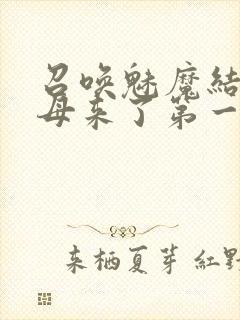 召喚魅魔結
母来了第一
来栖夏芽 紅野